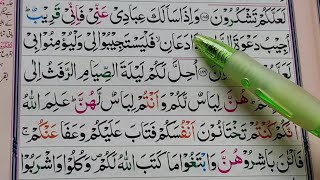 لَعَلَّكُمْ تَشْكُرُوْنَ وَاِذَا سَاَلَكَ عِبَادِىْ عَنِّىْ فَاِنِّىْ قَرِيْبٌ
اُجِيْبُ دَعْوَةَ دَعَانِ فَلْيَسْتَجِيْبُوْا لِىْ وَلْيُؤْمِنُوْا بِىْ
اُحِلَّ لَكُمْ لَيْلَةَ الصِّيَامِ الرَّفَثُ اِلٰى
هُنَّ لِبَاسٌ لَّكُمْ وَاَنْتُمْ لِبَاسٌ لَّهُنَّ عَلِمَ اللّٰهُ
اَنَّكُمْ كُنْتُمْ تَخْتَانُوْنَ اَنْفُسَكُمْ فَتَابَ عَلَيْكُمْ وَعَفَا عَنْكُمْ
فَالْـٰٔنَ بَاشِرُوْهُنَّ وَابْتَغُوْا مَا كَتَبَ اللّٰهُ لَكُمْ وَكُلُوْا وَاشْرَبُوْا